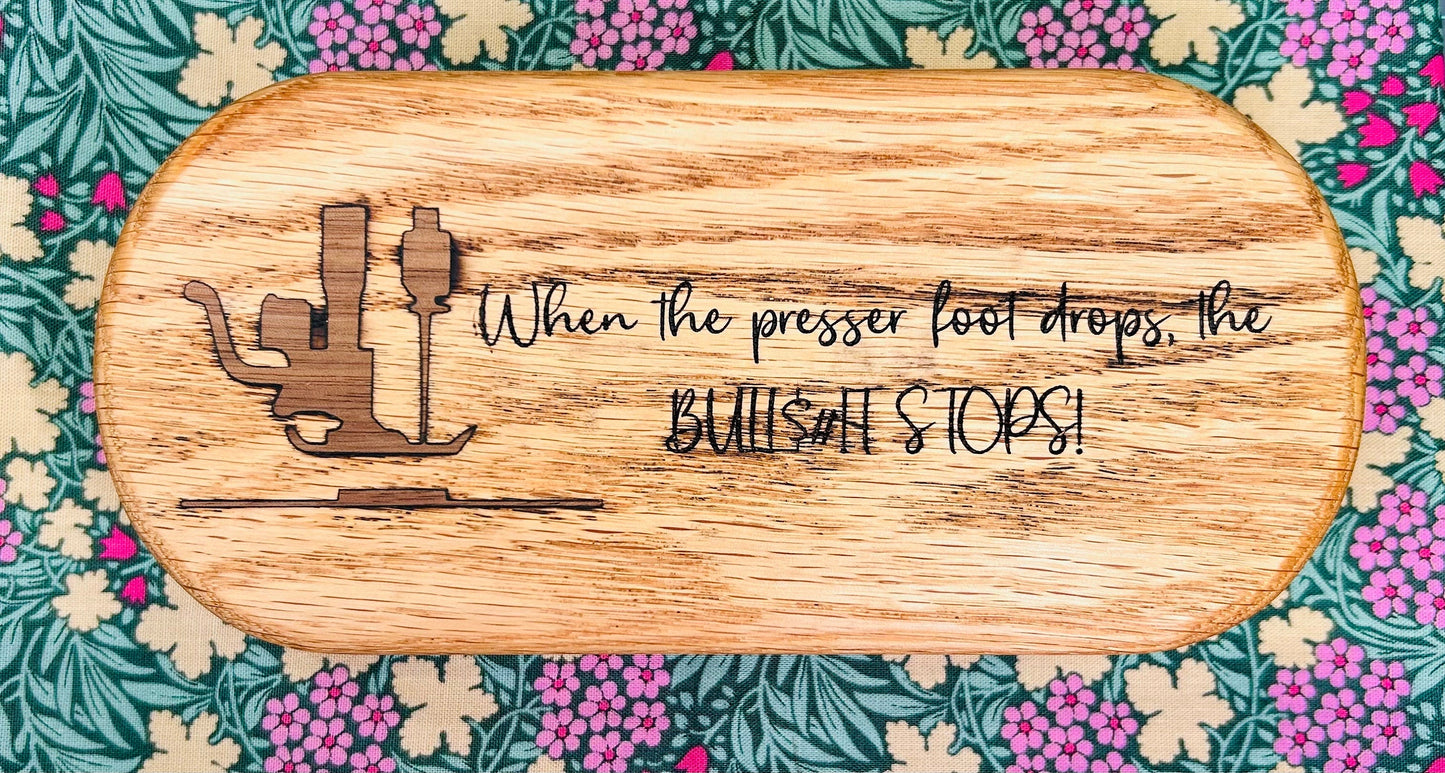 When the presser foot drops, the
BULL$#IT STOPS!